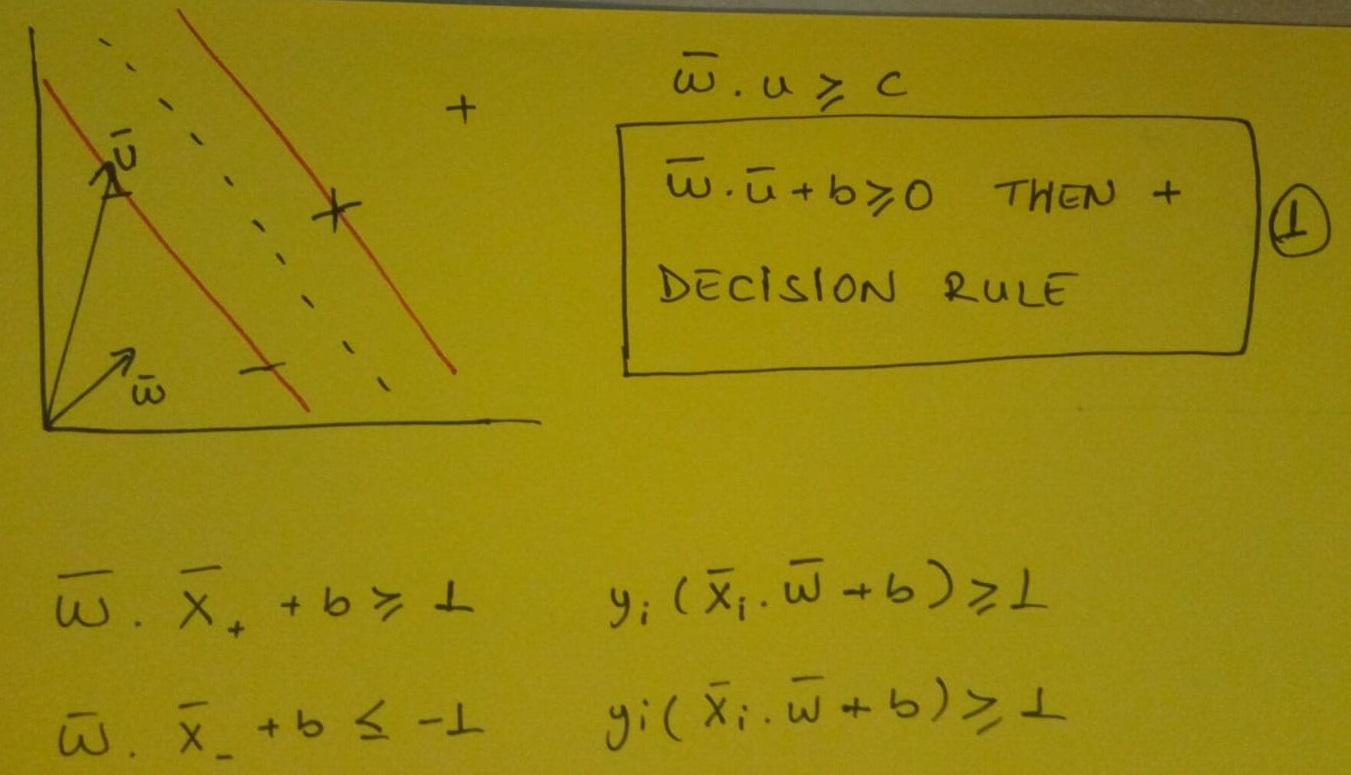 +
ū
+
−
w̄
−
w̄ . u ⩾ c
w̄ . ū + b ⩾ 0 THEN +
DECISION RULE
①
w̄ . x̄₊ + b ⩾ 1
yᵢ ( x̄ᵢ . w̄ + b ) ⩾ 1
w̄ . x̄₋ + b ≤ -1
yi ( x̄ᵢ . w̄ + b ) ⩾ 1